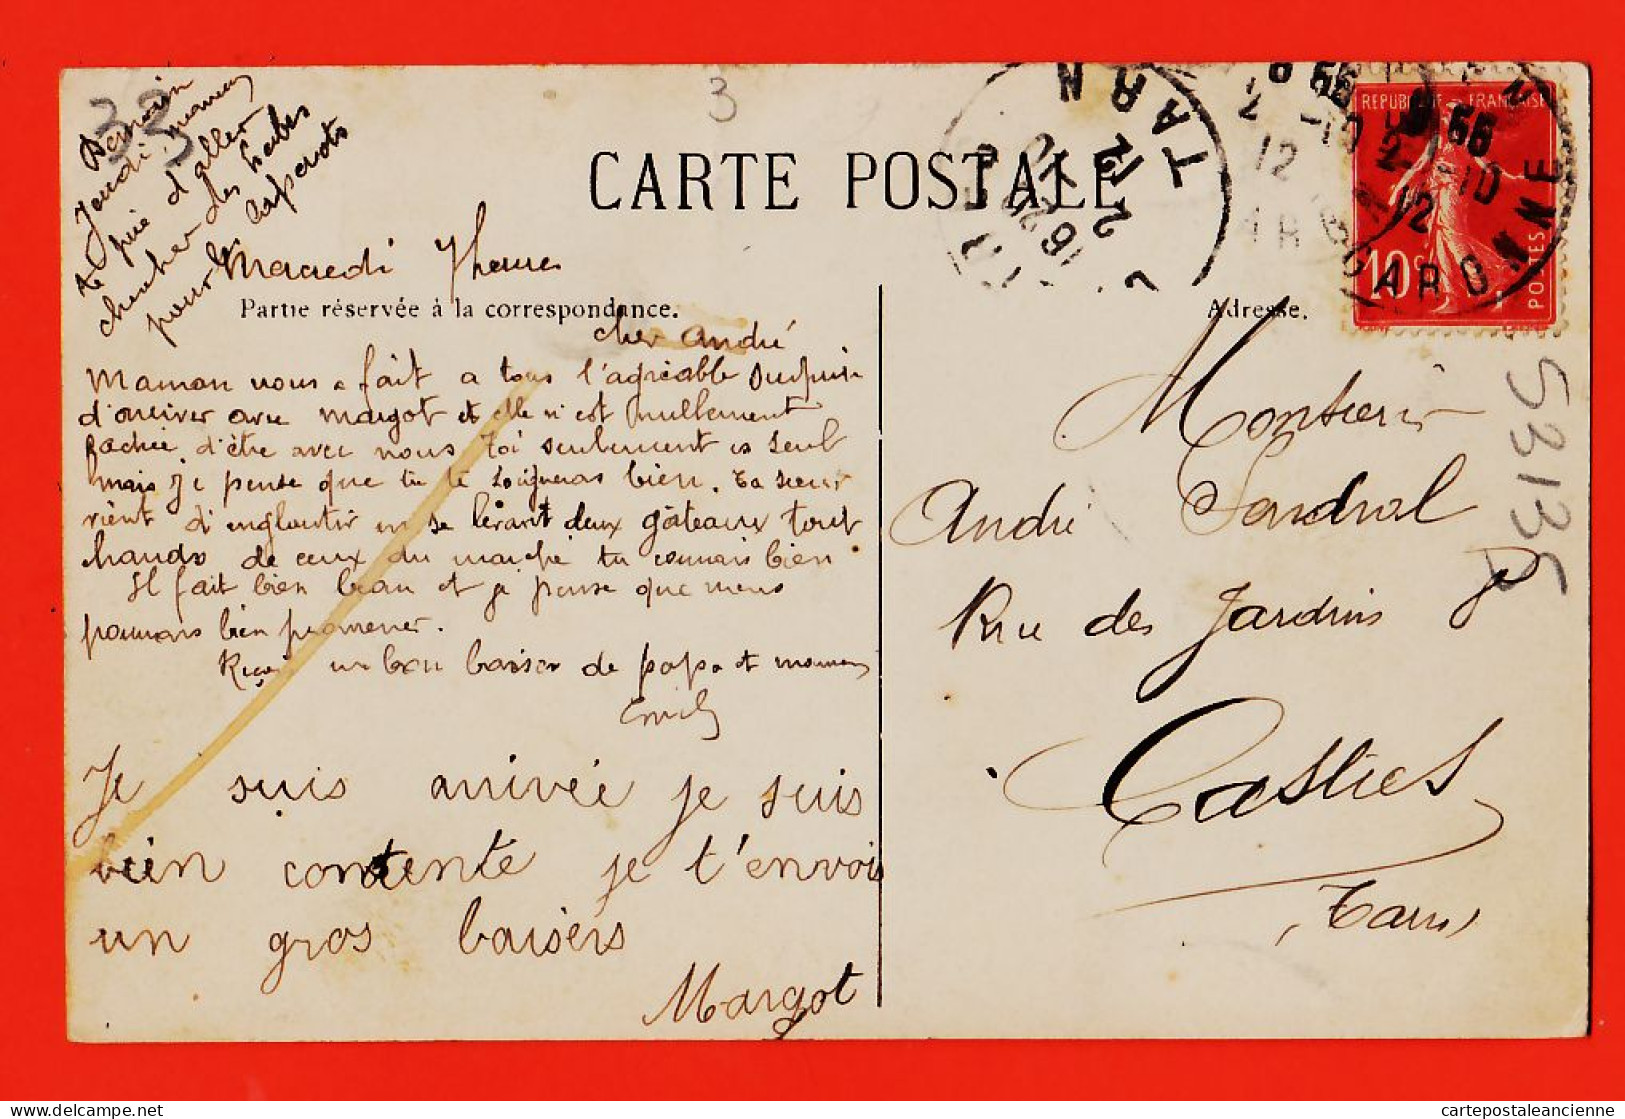 33
3
Demain
Jeudi, maman
te prie d'aller
chercher des herbes
pour les lapinots
CARTE POSTALE
TARN
2
12
RÉPUBLIQUE FRANÇAISE
10c
POSTES
GARONNE
Mercredi 7 heures
Partie réservée à la correspondance.
Adresse.
cher André
Maman nous a fait a tous l'agréable surprise
d'arriver avec Margot et elle n'est nullement
fachée d'être avec nous Toi seulement es seul
mais je pense que tu te soigneras bien. Ta sœur
vient d'engloutir en se levant deux gâteaux tout
chauds de ceux du marché tu connais bien
Il fait bien beau et je pense que nous
pourrons bien promener.
Reçois un bon baiser de papa et maman
Emile
Je suis arrivée je suis
bien contente je t'envoi
un gros baisers
Margot
Monsieur
André Sendral
Rue des Jardins
Castres
(Tarn)
53135
cartepostaleancienne
Delcampe.net